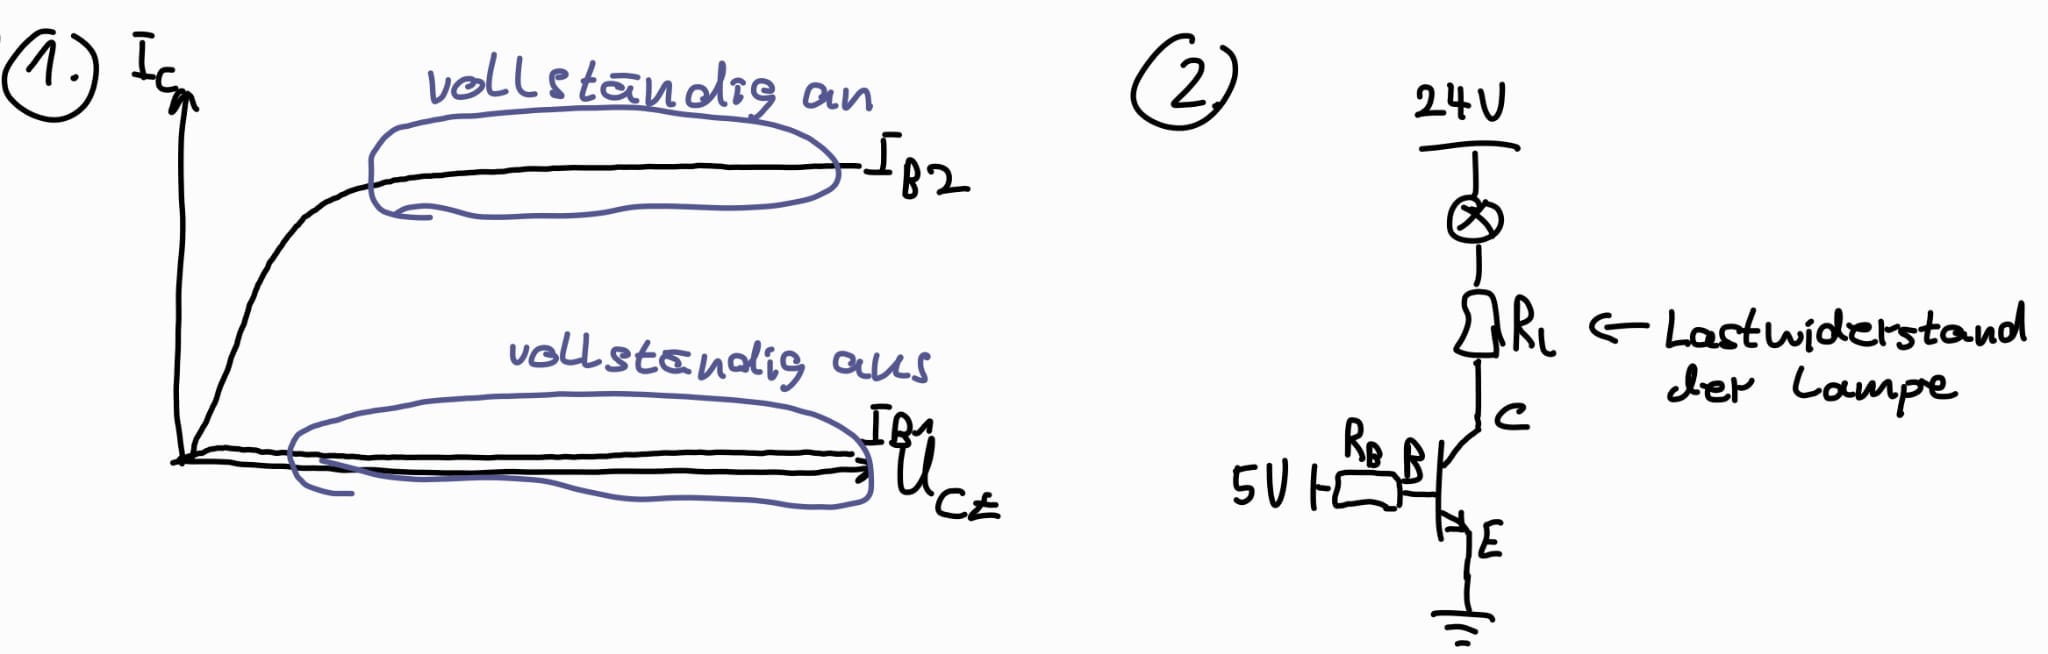 1.
I_C
vollständig an
I_B2
vollständig aus
I_B1
U_CE
2.
24V
R_L ← Lastwiderstand
der Lampe
C
R_B B
5V
E